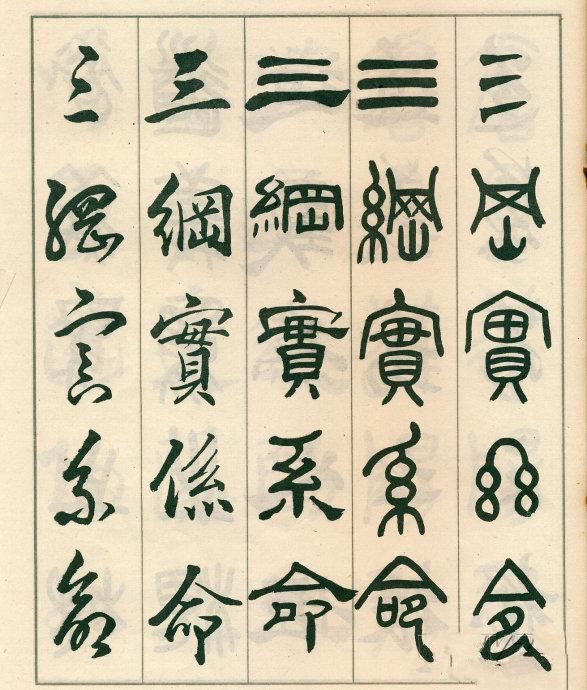 三岡實系命
三綱實系命
三綱實系命
三綱實係命
三綱實系命